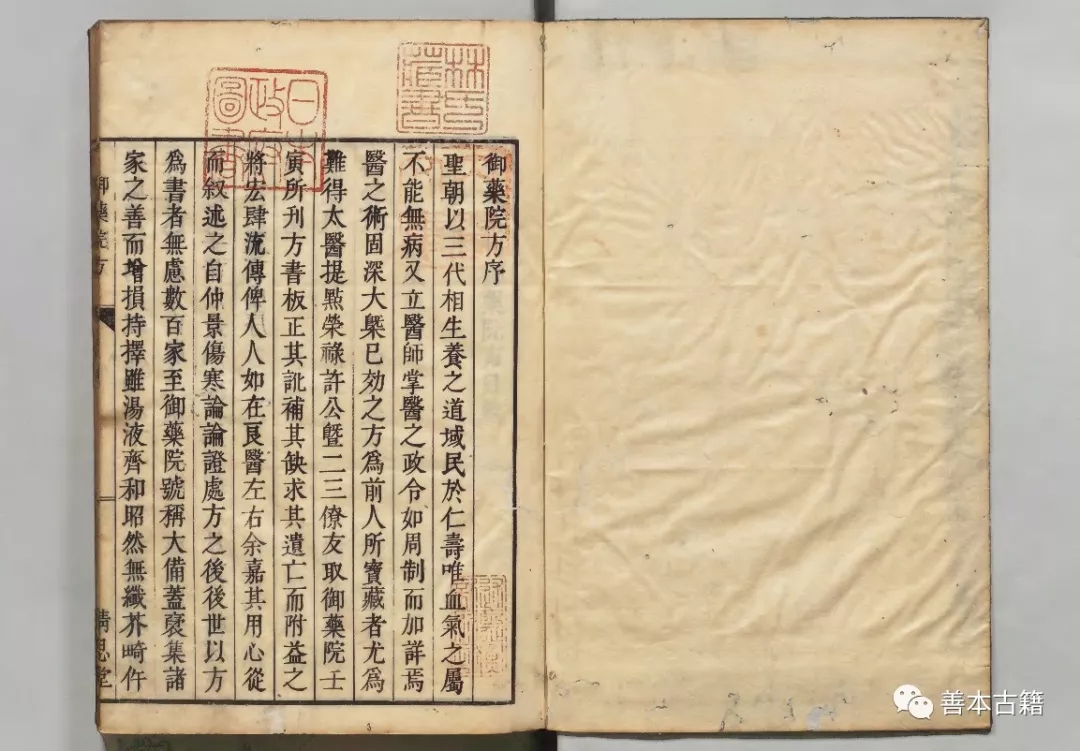 御藥院方序
聖朝以三代相生養之道域民於仁壽唯血氣之屬
不能無病又立醫師掌醫之政令如周制而加詳焉
醫之術固深大槩已効之方爲前人所寶藏者尤爲
難得太醫提點榮祿許公曁二三僚友取御藥院壬
寅所刊方書板正其訛補其缺求其遺亡而附益之
將宏肆流傳俾人人如在良醫左右余嘉其用心從
而叙述之自仲景傷寒論論證處方之後後世以方
爲書者無慮數百家至御藥院號稱大備蓋裒集諸
家之善而增損持擇雖湯液齊和昭然無纖芥畸仵
御藥院方
精思堂
日本
政府
圖書
林氏
藏書
善本古籍